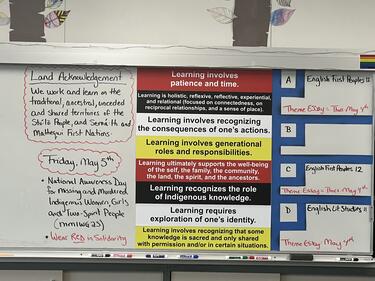 Land Acknowledgement
We work and learn on the
traditional, ancestral, unceded
and shared territories of the
Stó:lō People, and Semá:th and
Mathequi First Nations.
Friday, May 5th
• National Awareness Day
for Missing and Murdered
Indigenous Women, Girls
and Two-Spirit People
(MMIWG2S)
• Wear RED in Solidarity
Learning involves
patience and time.
Learning is holistic, reflexive, reflective, experiential,
and relational (focused on connectedness, on
reciprocal relationships, and a sense of place).
Learning involves recognizing
the consequences of one's actions.
Learning involves generational
roles and responsibilities.
Learning ultimately supports the well-being
of the self, the family, the community,
the land, the spirit, and the ancestors.
Learning recognizes the role
of Indigenous knowledge.
Learning requires
exploration of one's identity.
Learning involves recognizing that some
knowledge is sacred and only shared
with permission and/or in certain situations.
A
English First Peoples 11
Theme Essay = Thurs May 4th
B
C
English First Peoples 12
Theme Essay = Thurs May 4th
D
English Lit Studies 11
Theme Essay May 4th